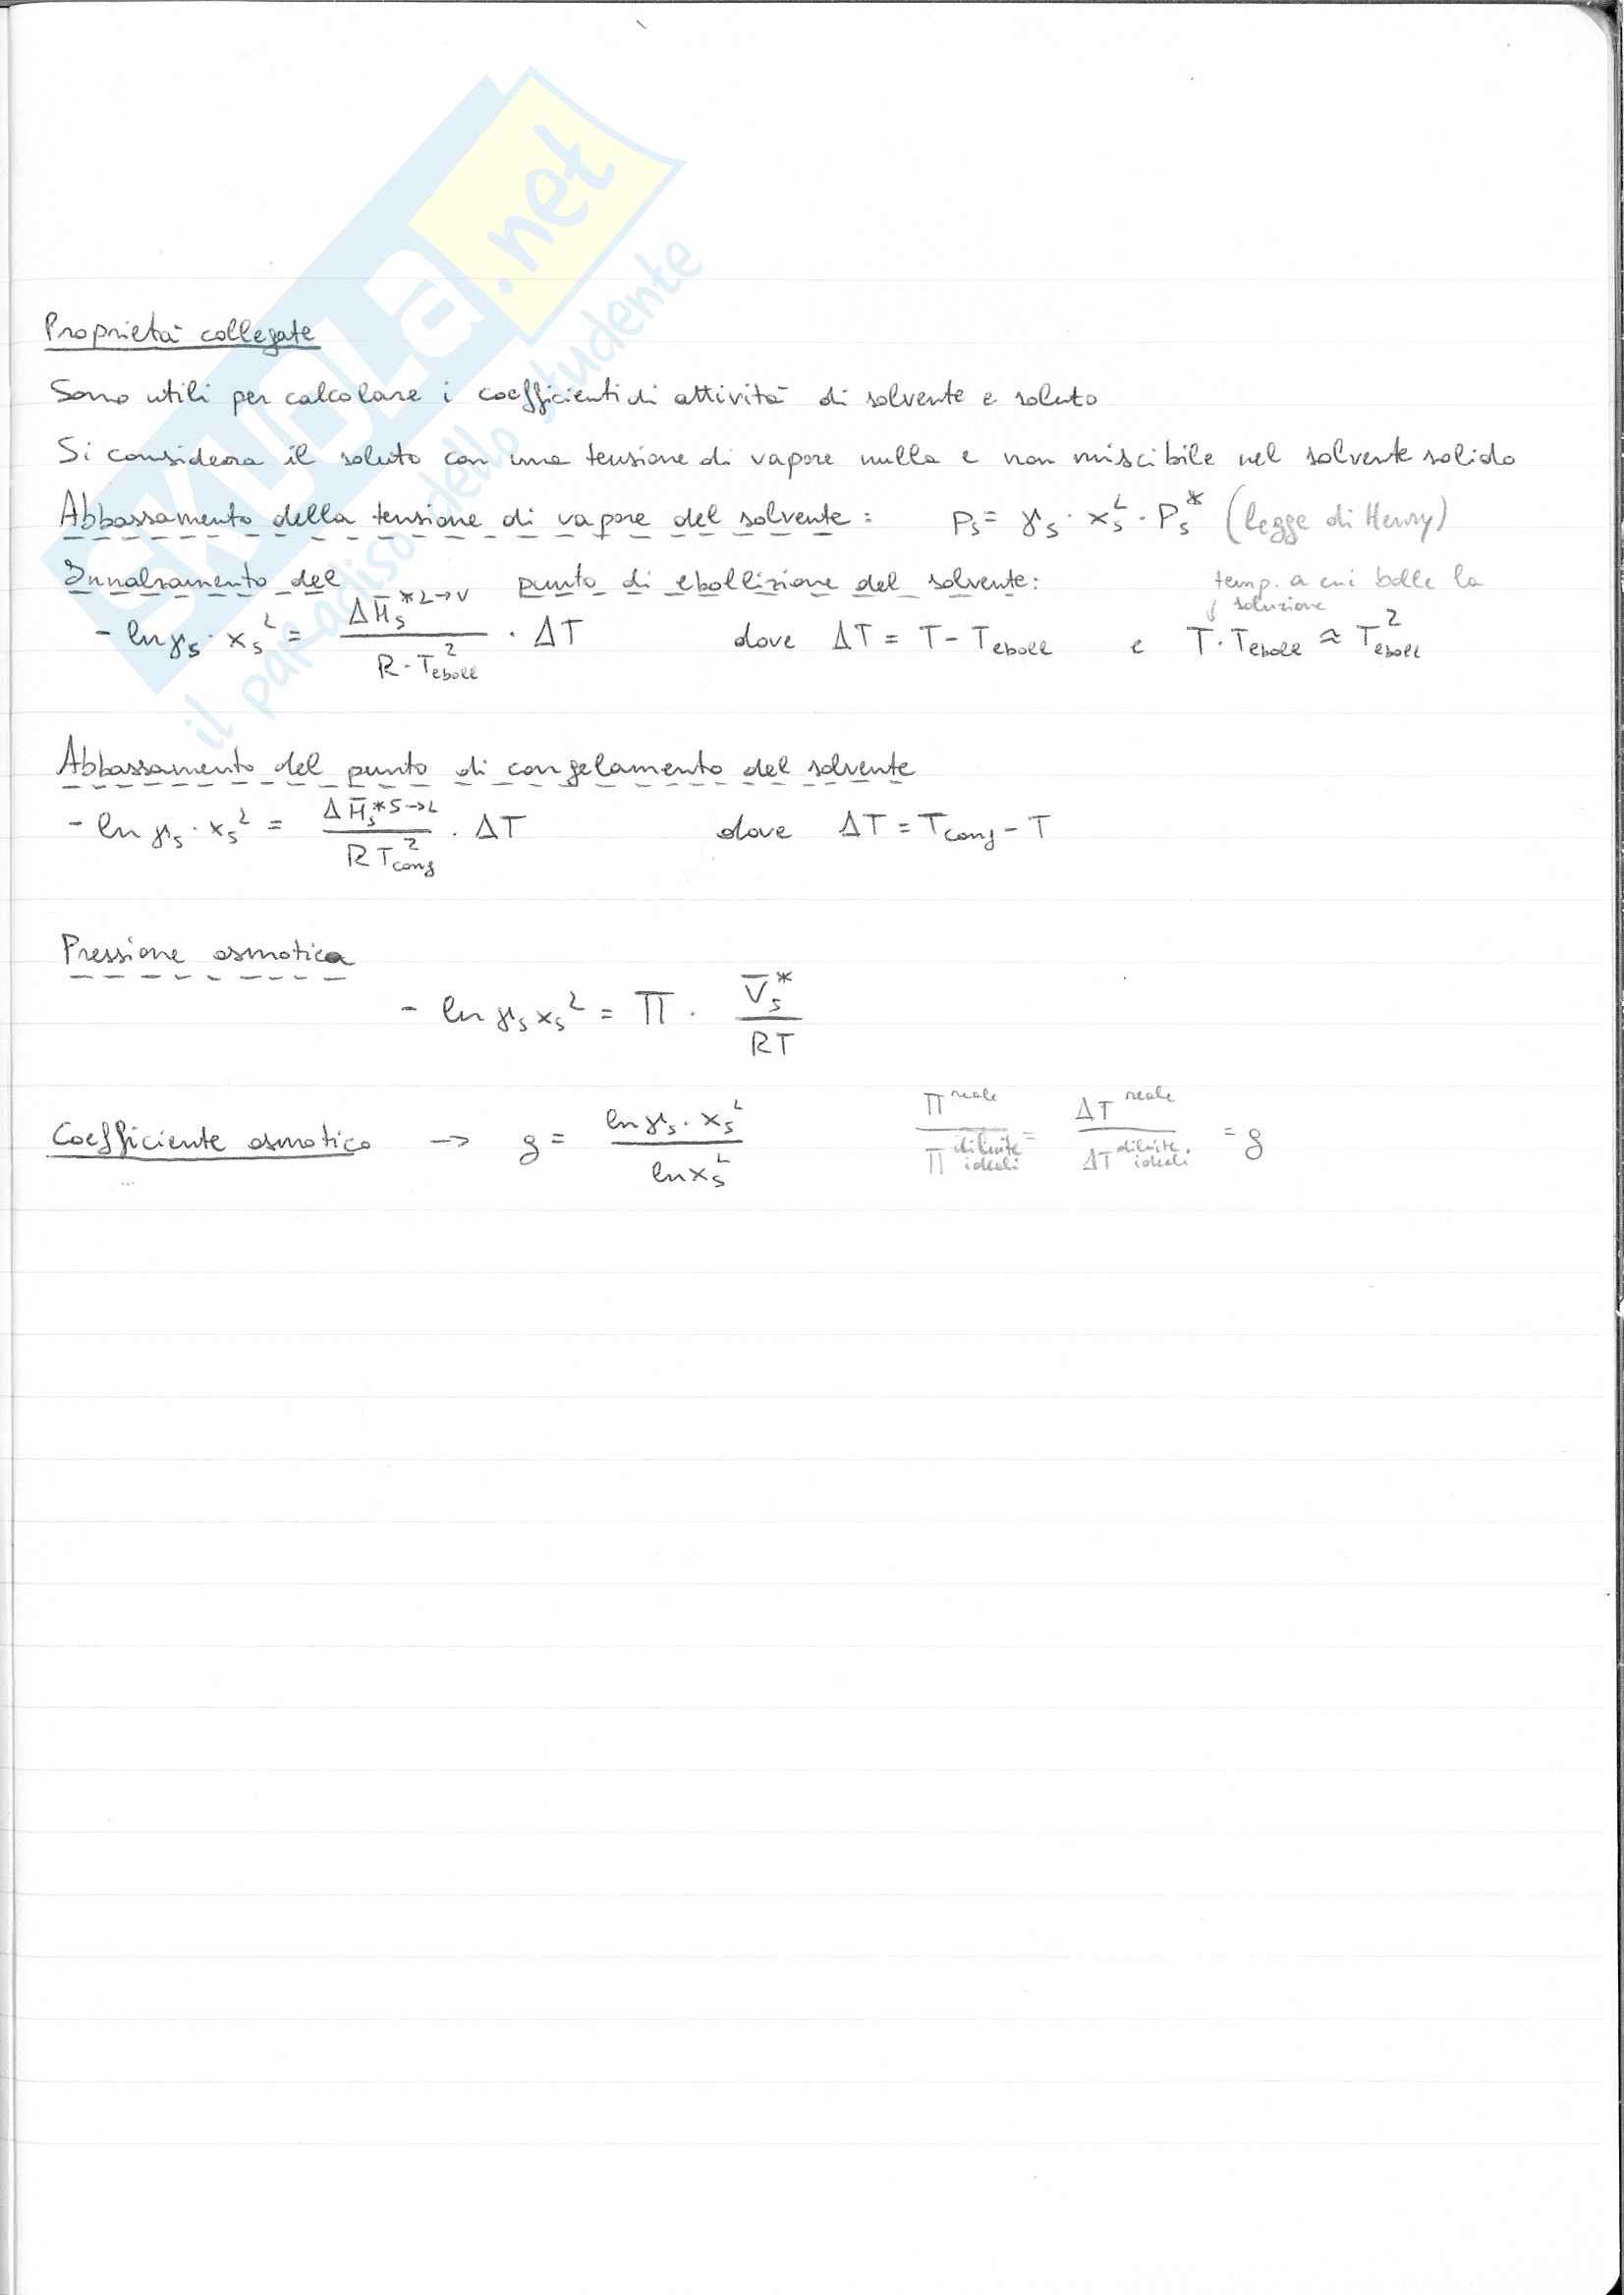 SKUOLA.net
il paradiso dello studente
Proprietà collegate
Sono utili per calcolare i coefficienti di attività di solvente e soluto
Si considera il soluto con una tensione di vapore nulla e non miscibile nel solvente solido
Abbassamento della tensione di vapore del solvente: Ps = γs · xs^L · Ps^* (legge di Henry)
Innalzamento del punto di ebollizione del solvente: temp. a cui bolle la soluzione
- ln γs · xs^L = ΔH̄s^{*L→V} / (R · Teboll^2) · ΔT dove ΔT = T - Teboll e T · Teboll ≈ Teboll^2
Abbassamento del punto di congelamento del solvente
- ln γs · xs^L = ΔH̄s^{*S→L} / (R Tcong^2) · ΔT dove ΔT = Tcong - T
Pressione osmotica
- ln γs xs^L = Π · V̄s^* / RT
Coefficiente osmotico → g = ln γs · xs^L / ln xs^L Π^reale / Π^{diluite ideali} = ΔT^reale / ΔT^{diluite ideali} = g